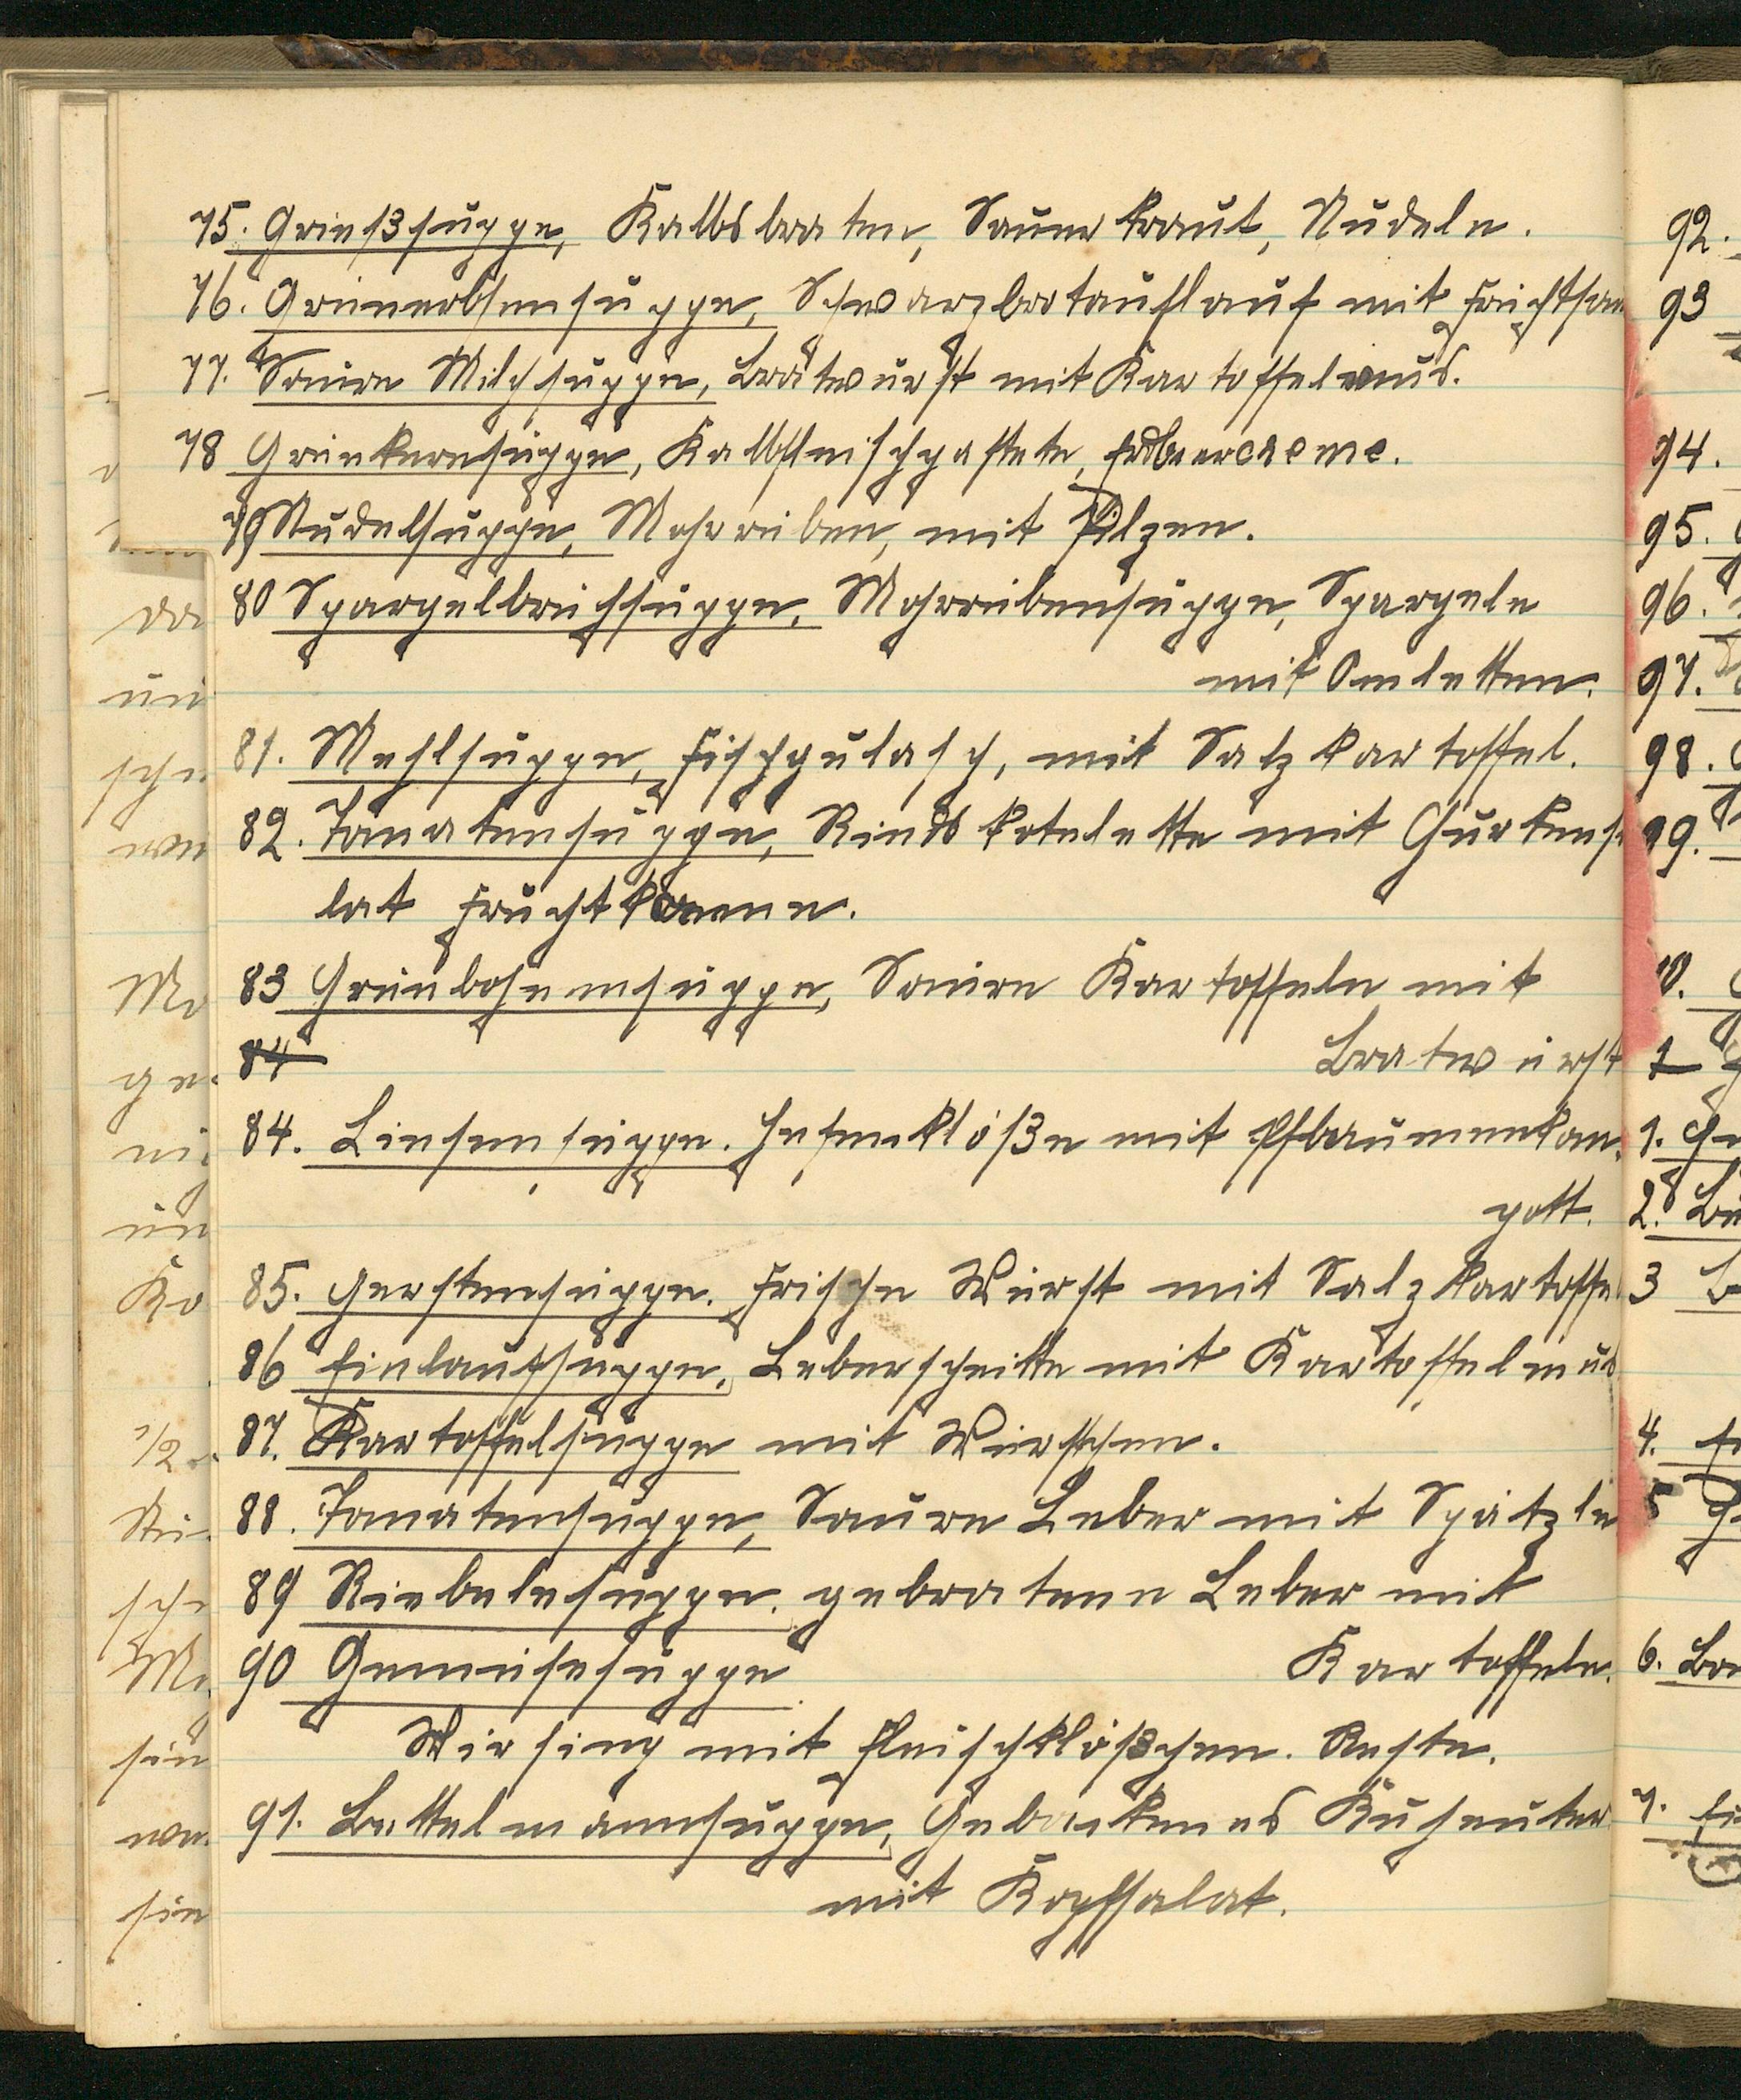 75. Grießsuppe, Kalbsbraten, Sauerkraut, Nudeln.
76. Grünerbsensuppe, Schwarzbrotauflauf mit
77. Saure Milchsuppe, Bratwurst mit Kartoffelmus.
78 Grünkernsuppe, Kalbfleischpastete, Erdbeercreme.
79 Nudelsuppe, Mohrrüben, mit Pilzen.
80 Spargelbrühsuppe, Mohrrübensuppe, Spargeln
mit Omletten.
81. Mehlsuppe, Fischgulasch, mit Salzkartoffel.
82. Tomatensuppe, Rindskotelette mit Gurkensa
lat
83 Grünbohnensuppe, Saure Kartoffeln mit
84
Bratwurst
84. Linsensuppe. Hefenklöße mit Pflaumenkom
pott.
85. Gerstensuppe. Frische Wurst mit Salzkartoffel
86 Einlaufsuppe, Leberschnitte mit Kartoffelmus
87. Kartoffelsuppe mit Würstchen.
88. Tomatensuppe, Saure Leber mit Spätzle
89 Riebelesuppe. gebratene Leber mit
Kartoffeln.
90 Gemüsesuppe
Wirsing mit Fleischklößchen. Reste.
91. Bettelmannsuppe, Gebackenes Kuheuter
mit Kopfsalat.
92.
93
94.
95.
96.
97.
98.
99.